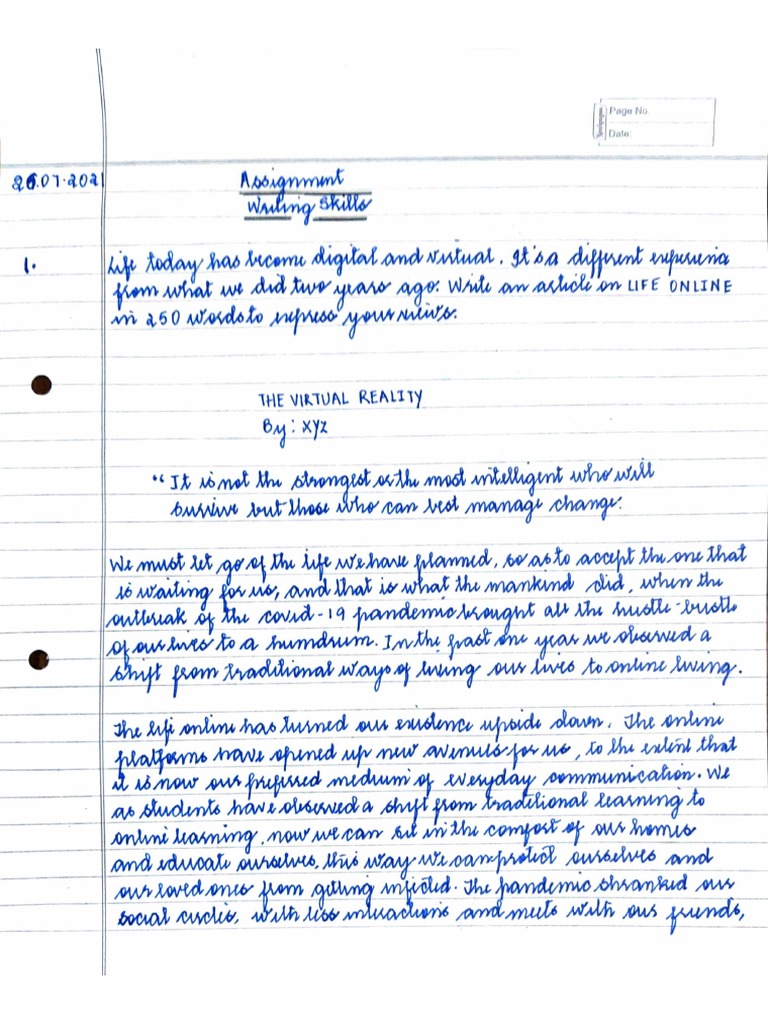 Page No.
Date:
26.07.2021
Assignment
Writing Skills
1. Life today has become digital and virtual. It's a different experience
from what we did two years ago. Write an article on LIFE ONLINE
in 250 words to express your views.
THE VIRTUAL REALITY
By: XYZ
"It is not the strongest or the most intelligent who will
survive but those who can best manage change.
We must let go of the life we have planned, so as to accept the one that
is waiting for us, and that is what the mankind did, when the
outbreak of the covid-19 pandemic brought all the hustle-bustle
of our lives to a humdrum. In the past one year we observed a
shift from traditional ways of living our lives to online living.
The life online has turned our existence upside down. The online
platforms have opened up new avenues for us, to the extent that
it is now our preferred medium of everyday communication. We
as students have observed a shift from traditional learning to
online learning, now we can sit in the comfort of our homes
and educate ourselves, this way we can protect ourselves and
our loved ones from getting infected. The pandemic shranked our
social circles, with less interactions and meets with our friends,